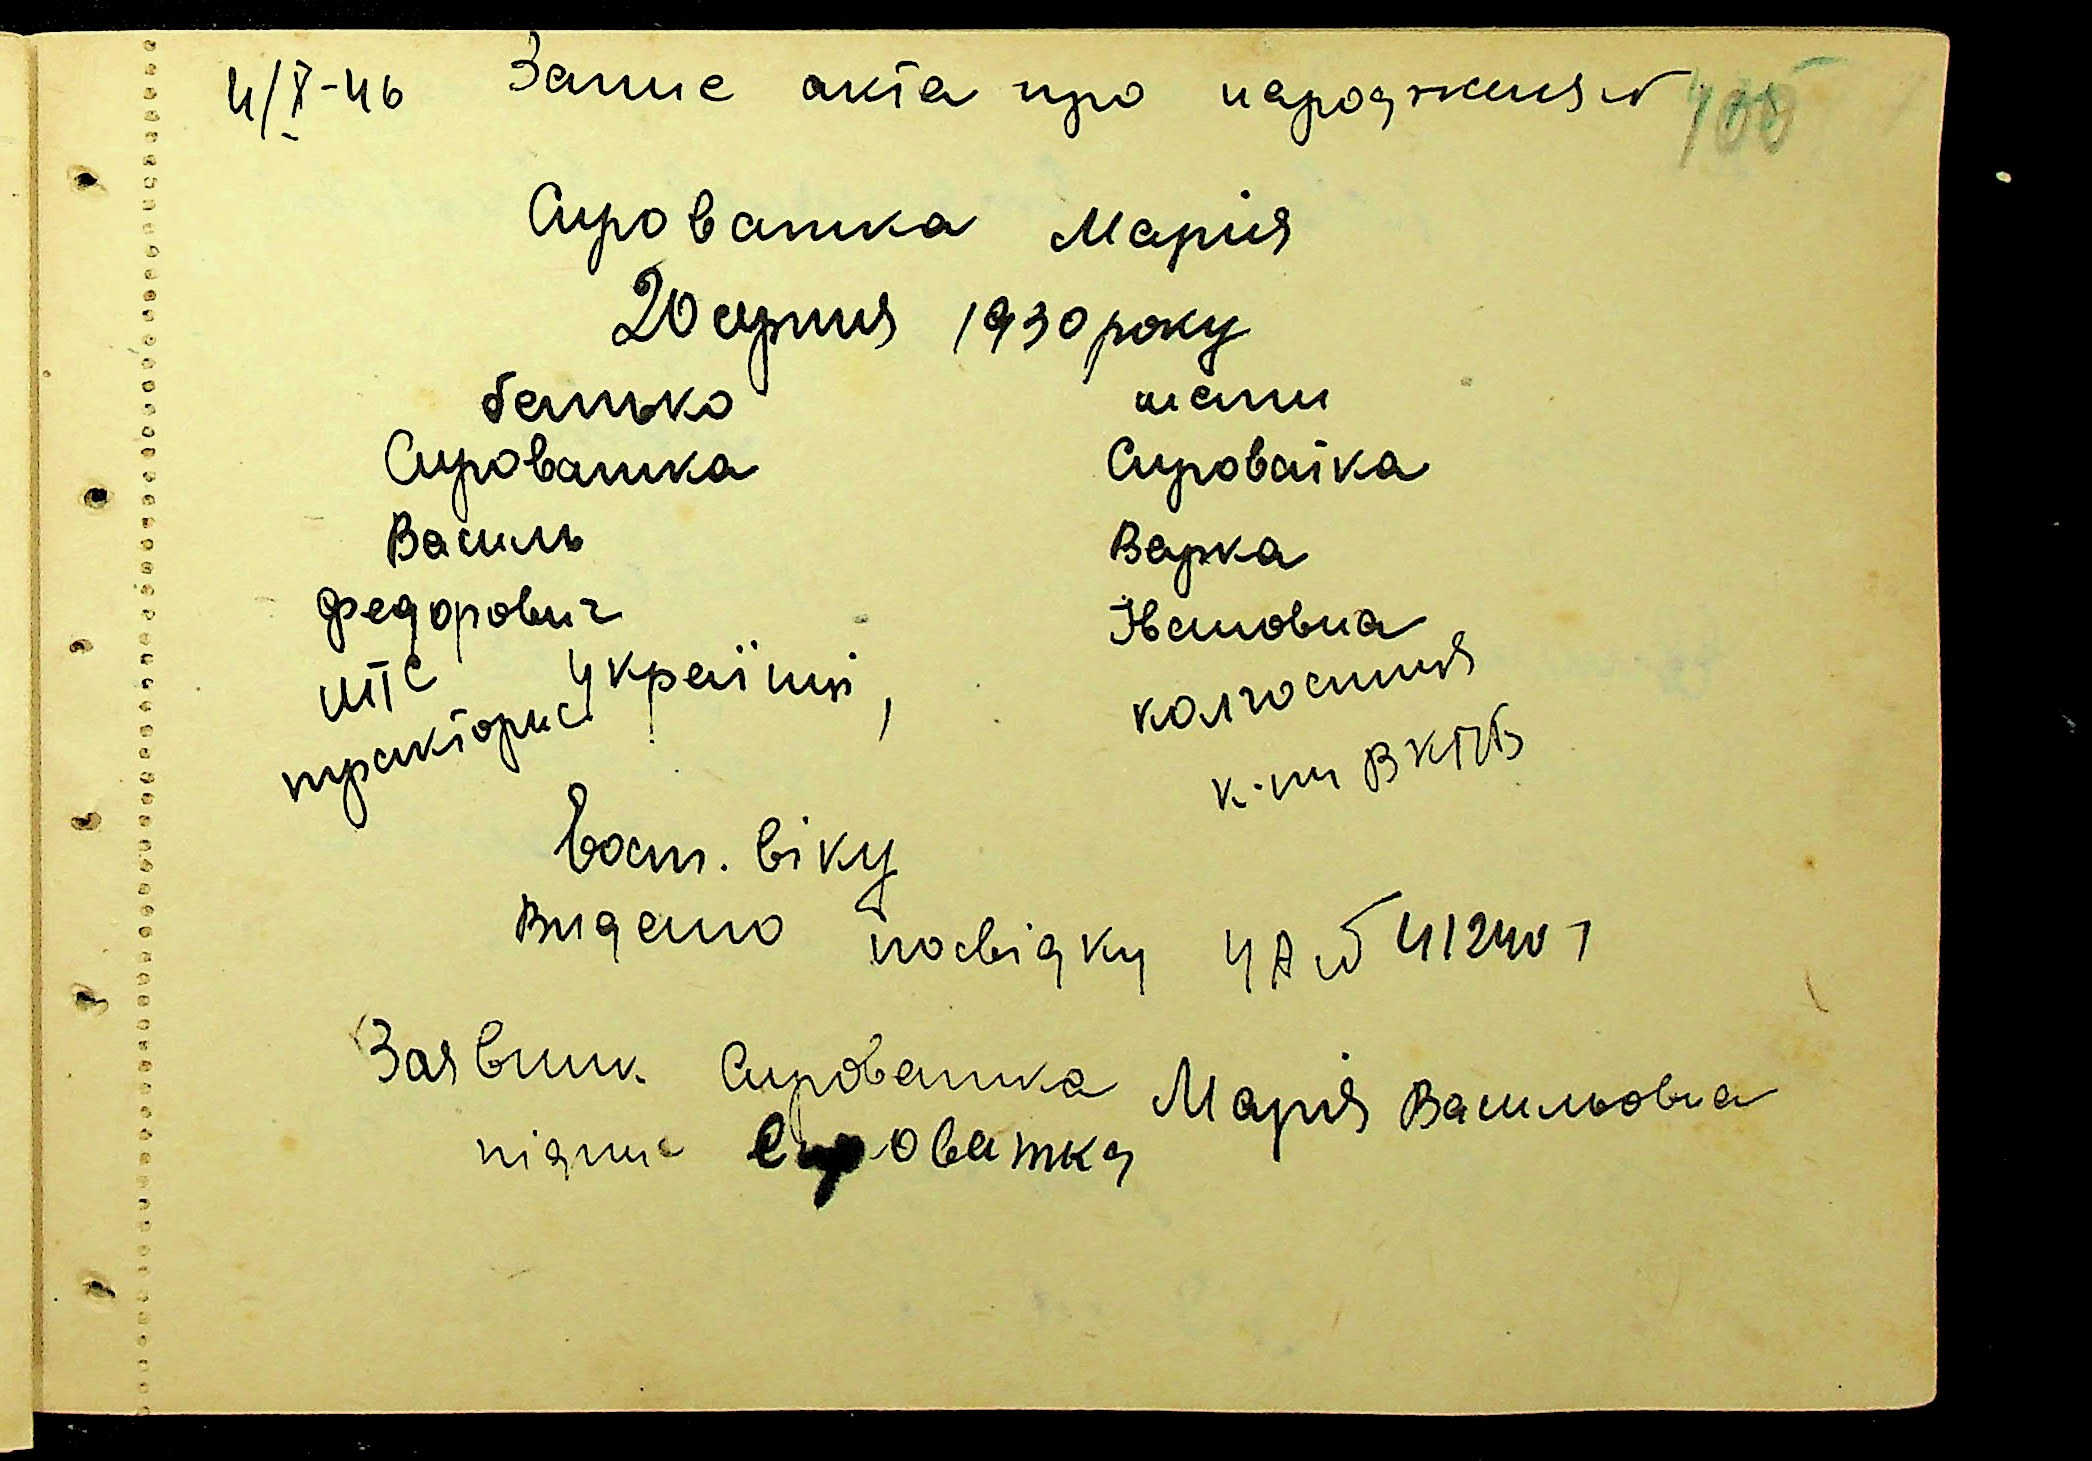 4/X-46 Запис акта про народження №
Сироватка Марія
20 серпня 1930 року
батько мати
Сироватка Сироватка
Василь Варка
Федорович Івановна
МТС українці, колгоспниця
тракторис к-пи ВКПБ
вост. віку
Видано посвідку ЧА № 412401
Заявник Сироватка Марія Васильовна
підпис Сироватка